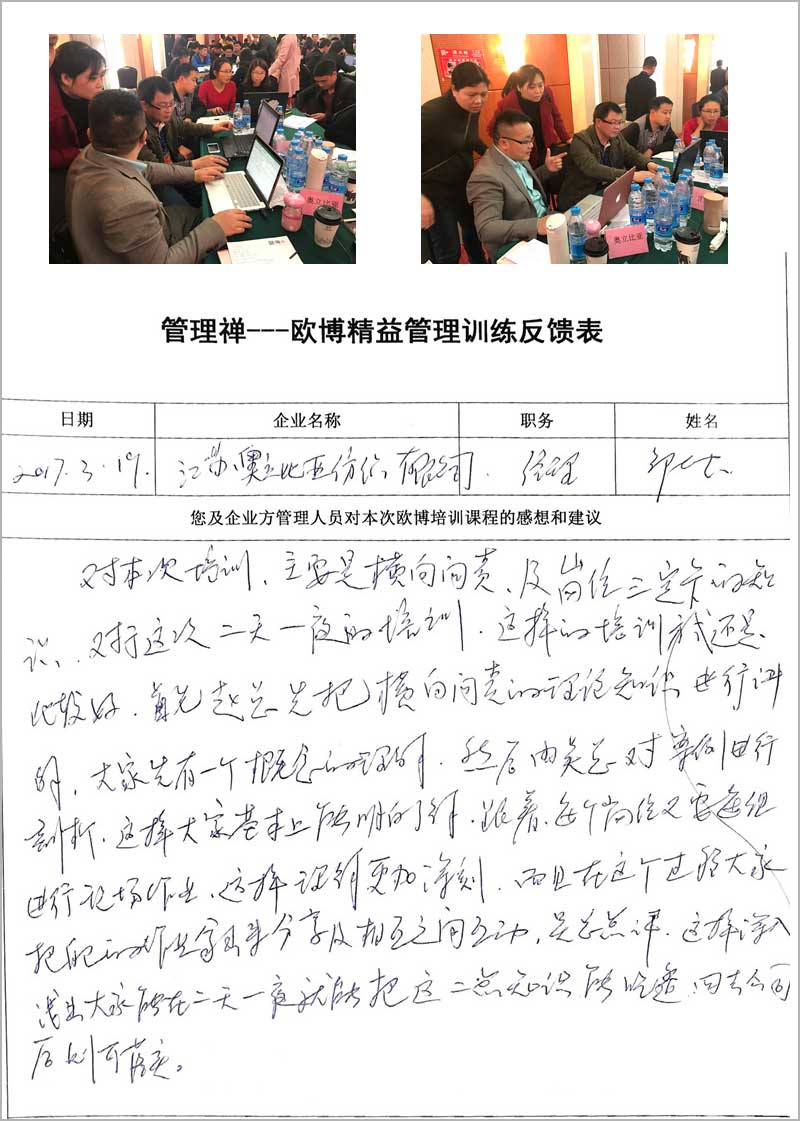 奥立比亚
奥立比亚
管理禅---欧博精益管理训练反馈表
日期 企业名称 职务 姓名
2017.3.19. 江苏奥立比亚纺织有限公司. 经理
您及企业方管理人员对本次欧博培训课程的感想和建议
对本次培训，主要是横向问责、及岗位三定卡的知
识、对于这次二天一夜的培训．这样的培训方式还是
比较好．首先赵总先把横向问责的理论知识进行讲
解，大家先有一个概念的理解．然后由吴总对案例进行
剖析．这样大家基本上能明白了解．跟着．每个岗位又要每组
进行现场作业、这样理解更加深刻．而且在这个过程大家
把的作业拿出来分享及相互之间互动，吴总点评．这样深入
浅出大家能在二天一夜就能把这二点知识能吃透．回去公司
后则可落实。